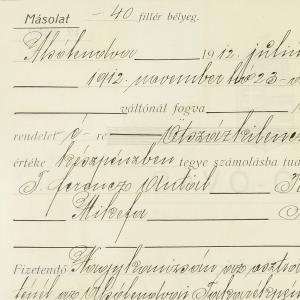 Másolat – 40 fillér bélyeg.
Alsólendva 1912. juliu
1912. november hó 23-
váltónál fogva
rendelet a re Ötszázkilenc
értéke készpénzben tegye számolásba tud
T. Ferencz Antal T
Mikefa
Fizetendő Nagykanizsán az osztrá
tenél az Alsólendvai Takarékpén